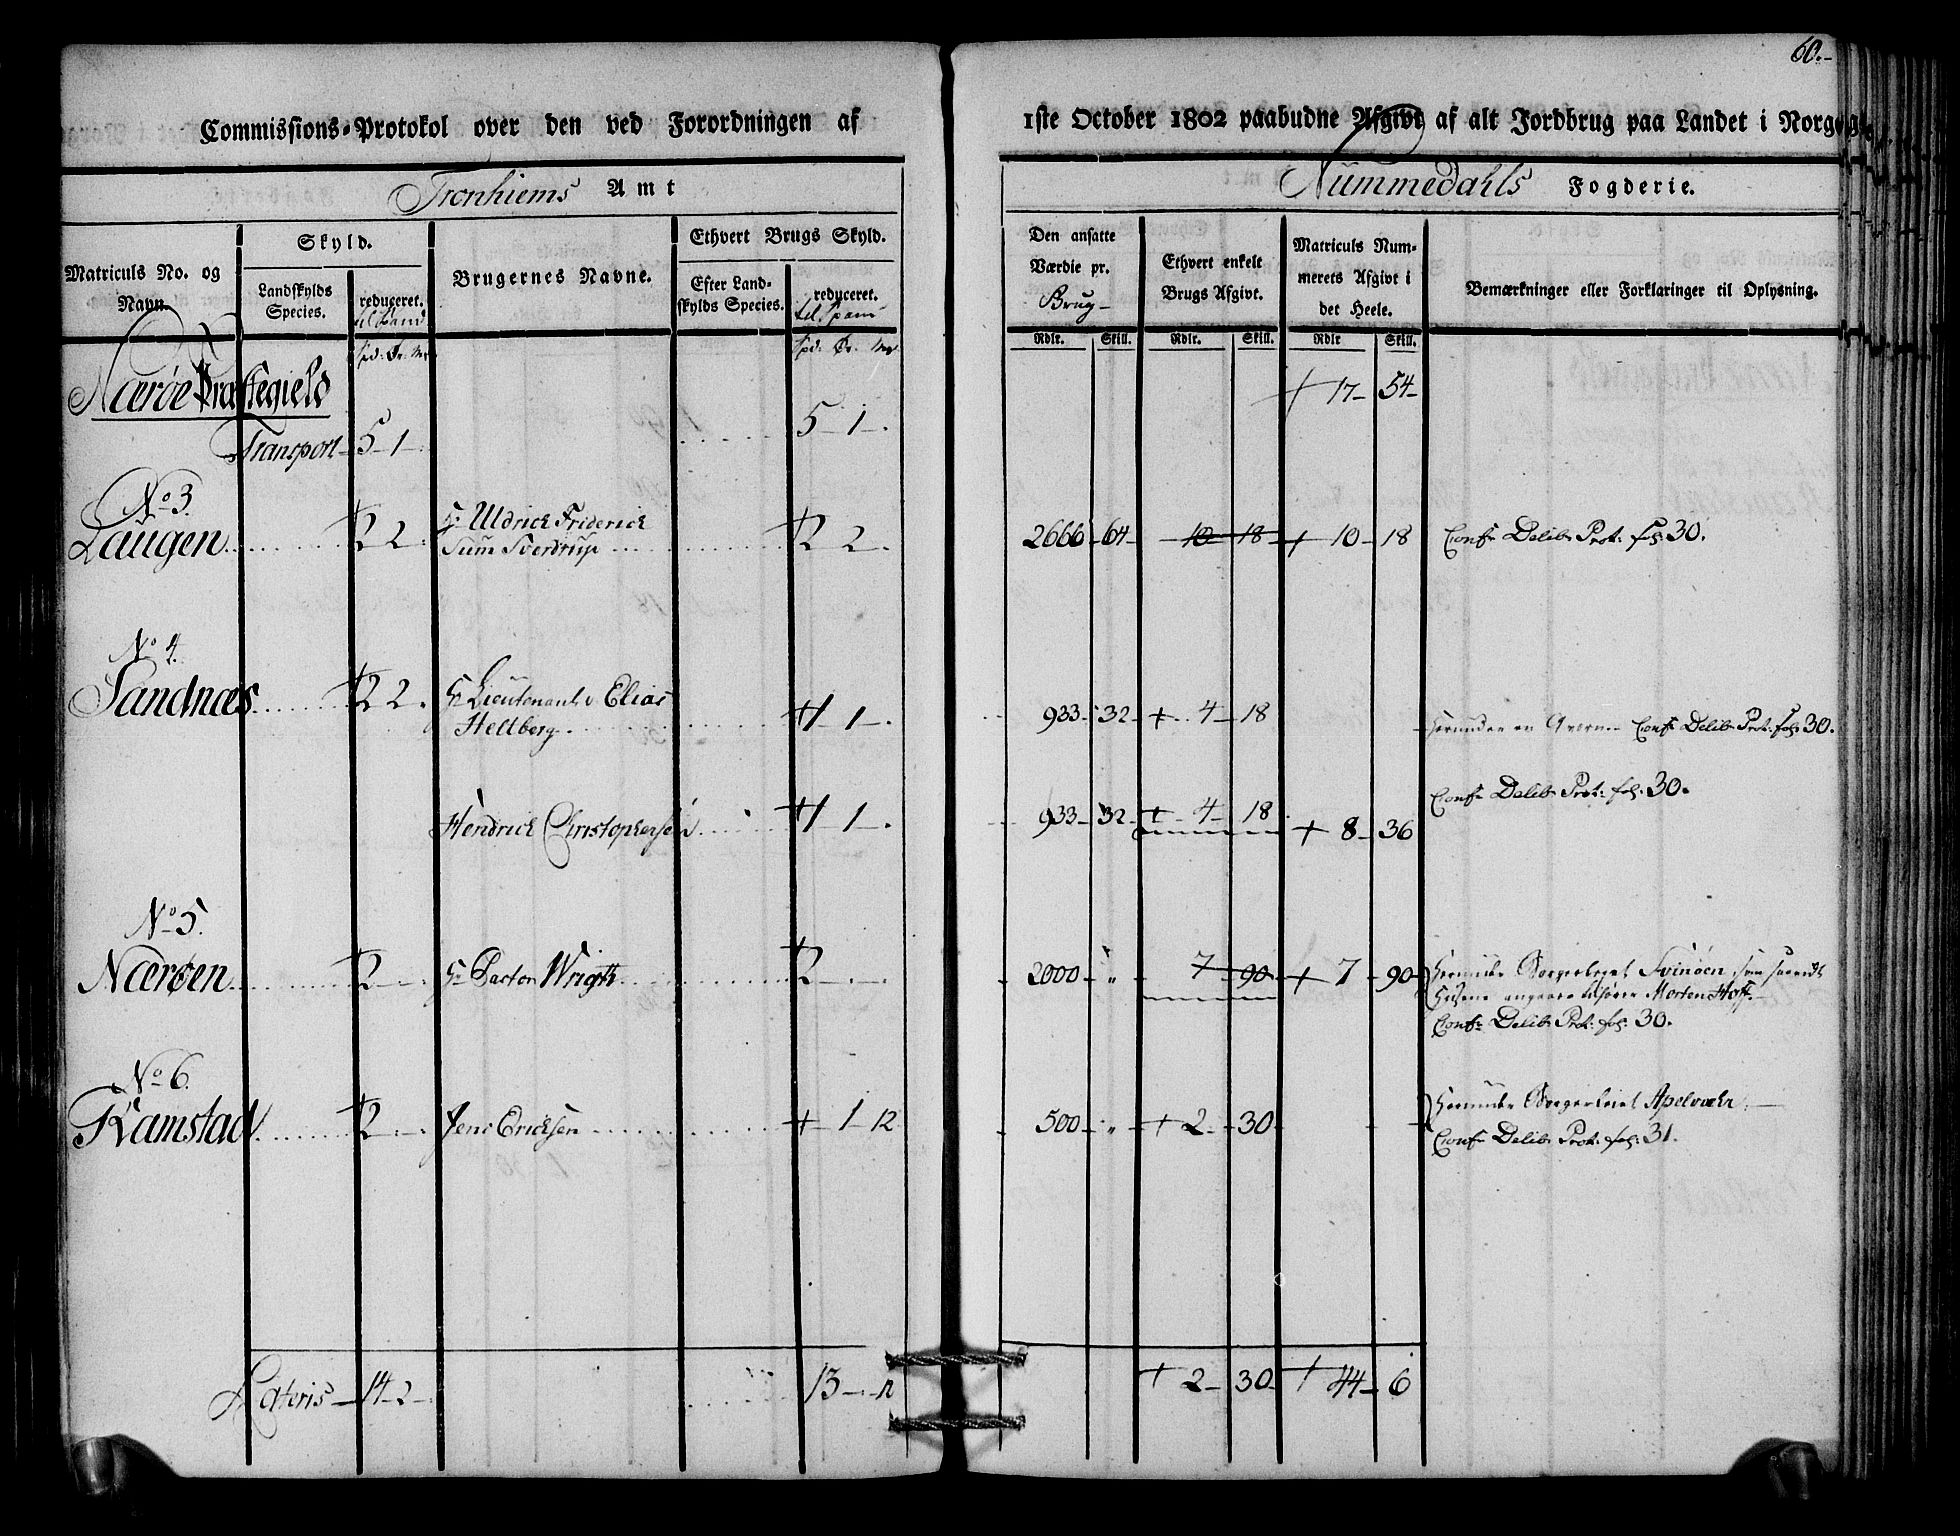 60.-
Commissions-Protokol over den ved Forordningen af 1ste October 1802 paabudne Afgivt af alt Jordbrug paa Landet i Norge
Tronhiems Amt
Nummedahls Fogderie.
Matriculs No. og Navn.
Skyld.
Landskylds Species.
reduceret. til Spand
Spd: Ør. Mr
Brugernes Navne.
Ethvert Brugs Skyld.
Efter Landskylds Species.
reduceret. til Spand
Spd: Ør. Mr
Den ansatte Værdie pr. Brug-
Rdlr. Skill.
Ethvert enkelt Brugs Afgivt.
Rdlr. Skill.
Matriculs Nummerets Afgivt i det Heele.
Rdlr Skill.
Bemærkninger eller Forklaringer til Oplysning.
Nærøe Præstegield
+ 17- 54-
Transport- 5-1-. 5-1-.
No 3.
Laugen +2 2. Hr Uldrick Friderick
Sum Sverdrup +2 2. 2666-64- 10-18- + 10-18 Confr Delib: Prot: fol: 30.
No 4.
Sandnæs +2 2. Hr Lieutenant v Elias
Heltberg +1 1-. 933-32- + 4-18 herunder en Qvern- Confr Delib: Prot: fol: 30.
Hendrick Christophersen +1 1-. 933-32- + 4-18 + 8-36 Confr Delib: Prot: fol: 30.
No 5.
Nærøen +2-- Hr Pastor Wrigth +2-- 2000-" 7-90- + 7-90 herunder Borgerleiet Svinøen som
Husene angaaer tilhører Morten Hoff.-
Confr Delib: Prot: fol: 30.
No 6.
Kamstad +2-- Jens Ericksen + 1 12 500-" + 2-30- herunder Borgerleiet Apelvær
Confr Delib: Prot: fol: 31.
Lateris- 14-2- 13--12 + 2-30- + 44-6